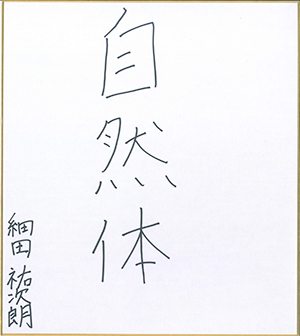 自然体
細田 祐次朗